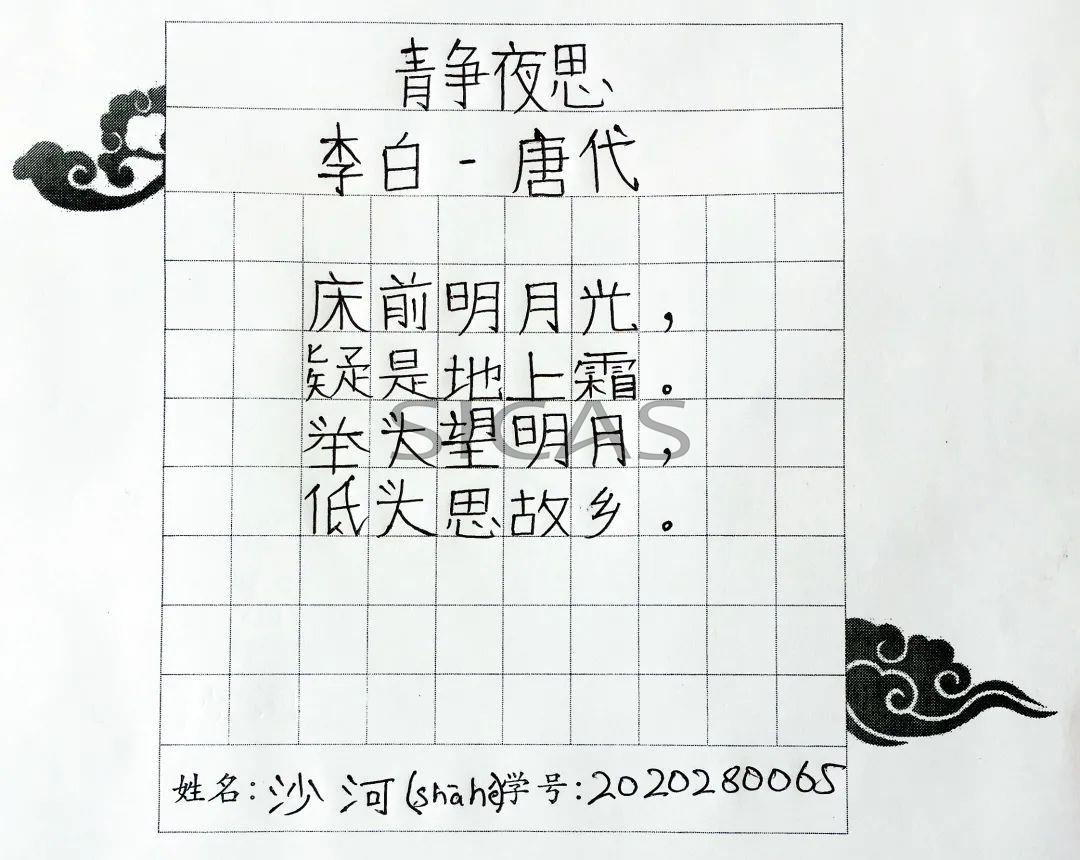 静夜思
李白 - 唐代
床前明月光，
疑是地上霜。
举头望明月，
低头思故乡。
SICAS
姓名：沙河(shāhé)学号：2020280065